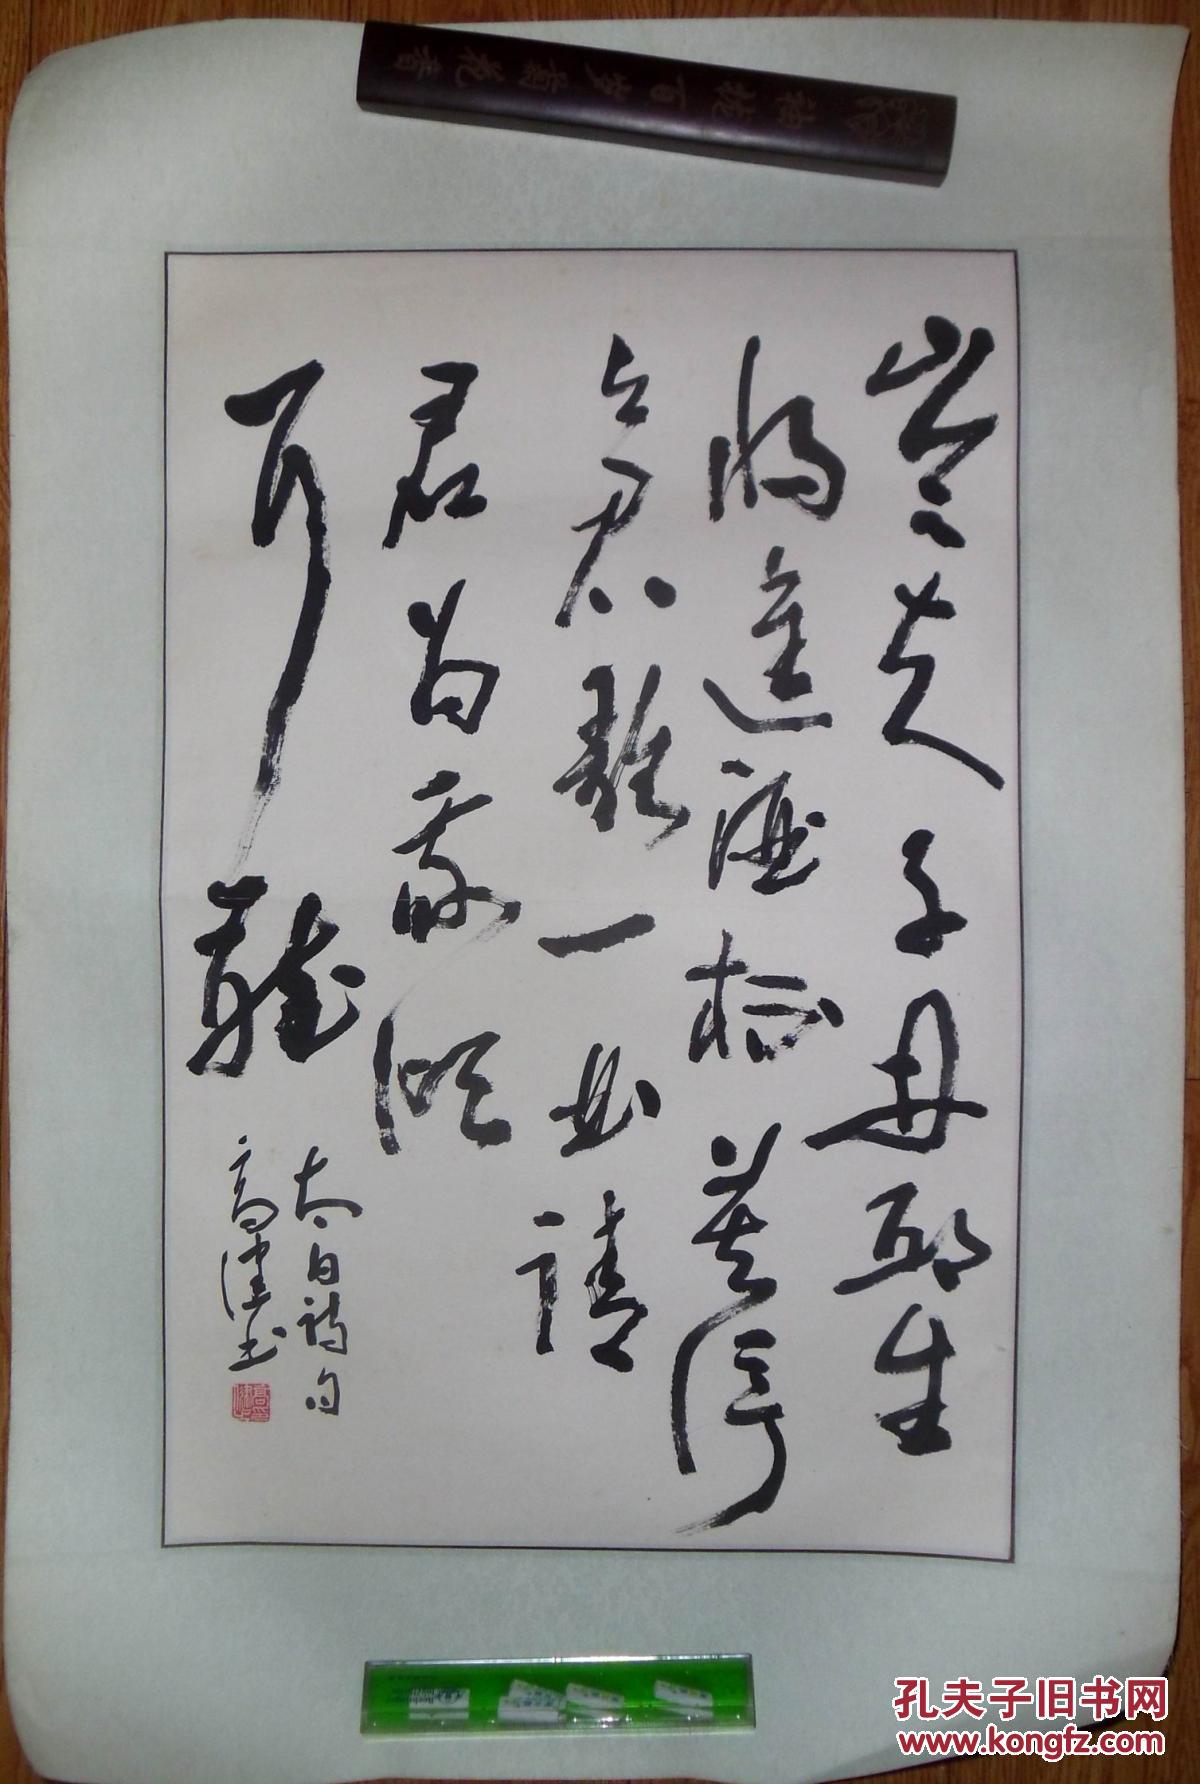 岑夫子丹邱生
将進酒杯莫停
与君歌一曲請
君为我倾
耳聽
太白詩句
高津书
孔夫子旧书网
www.kongfz.com